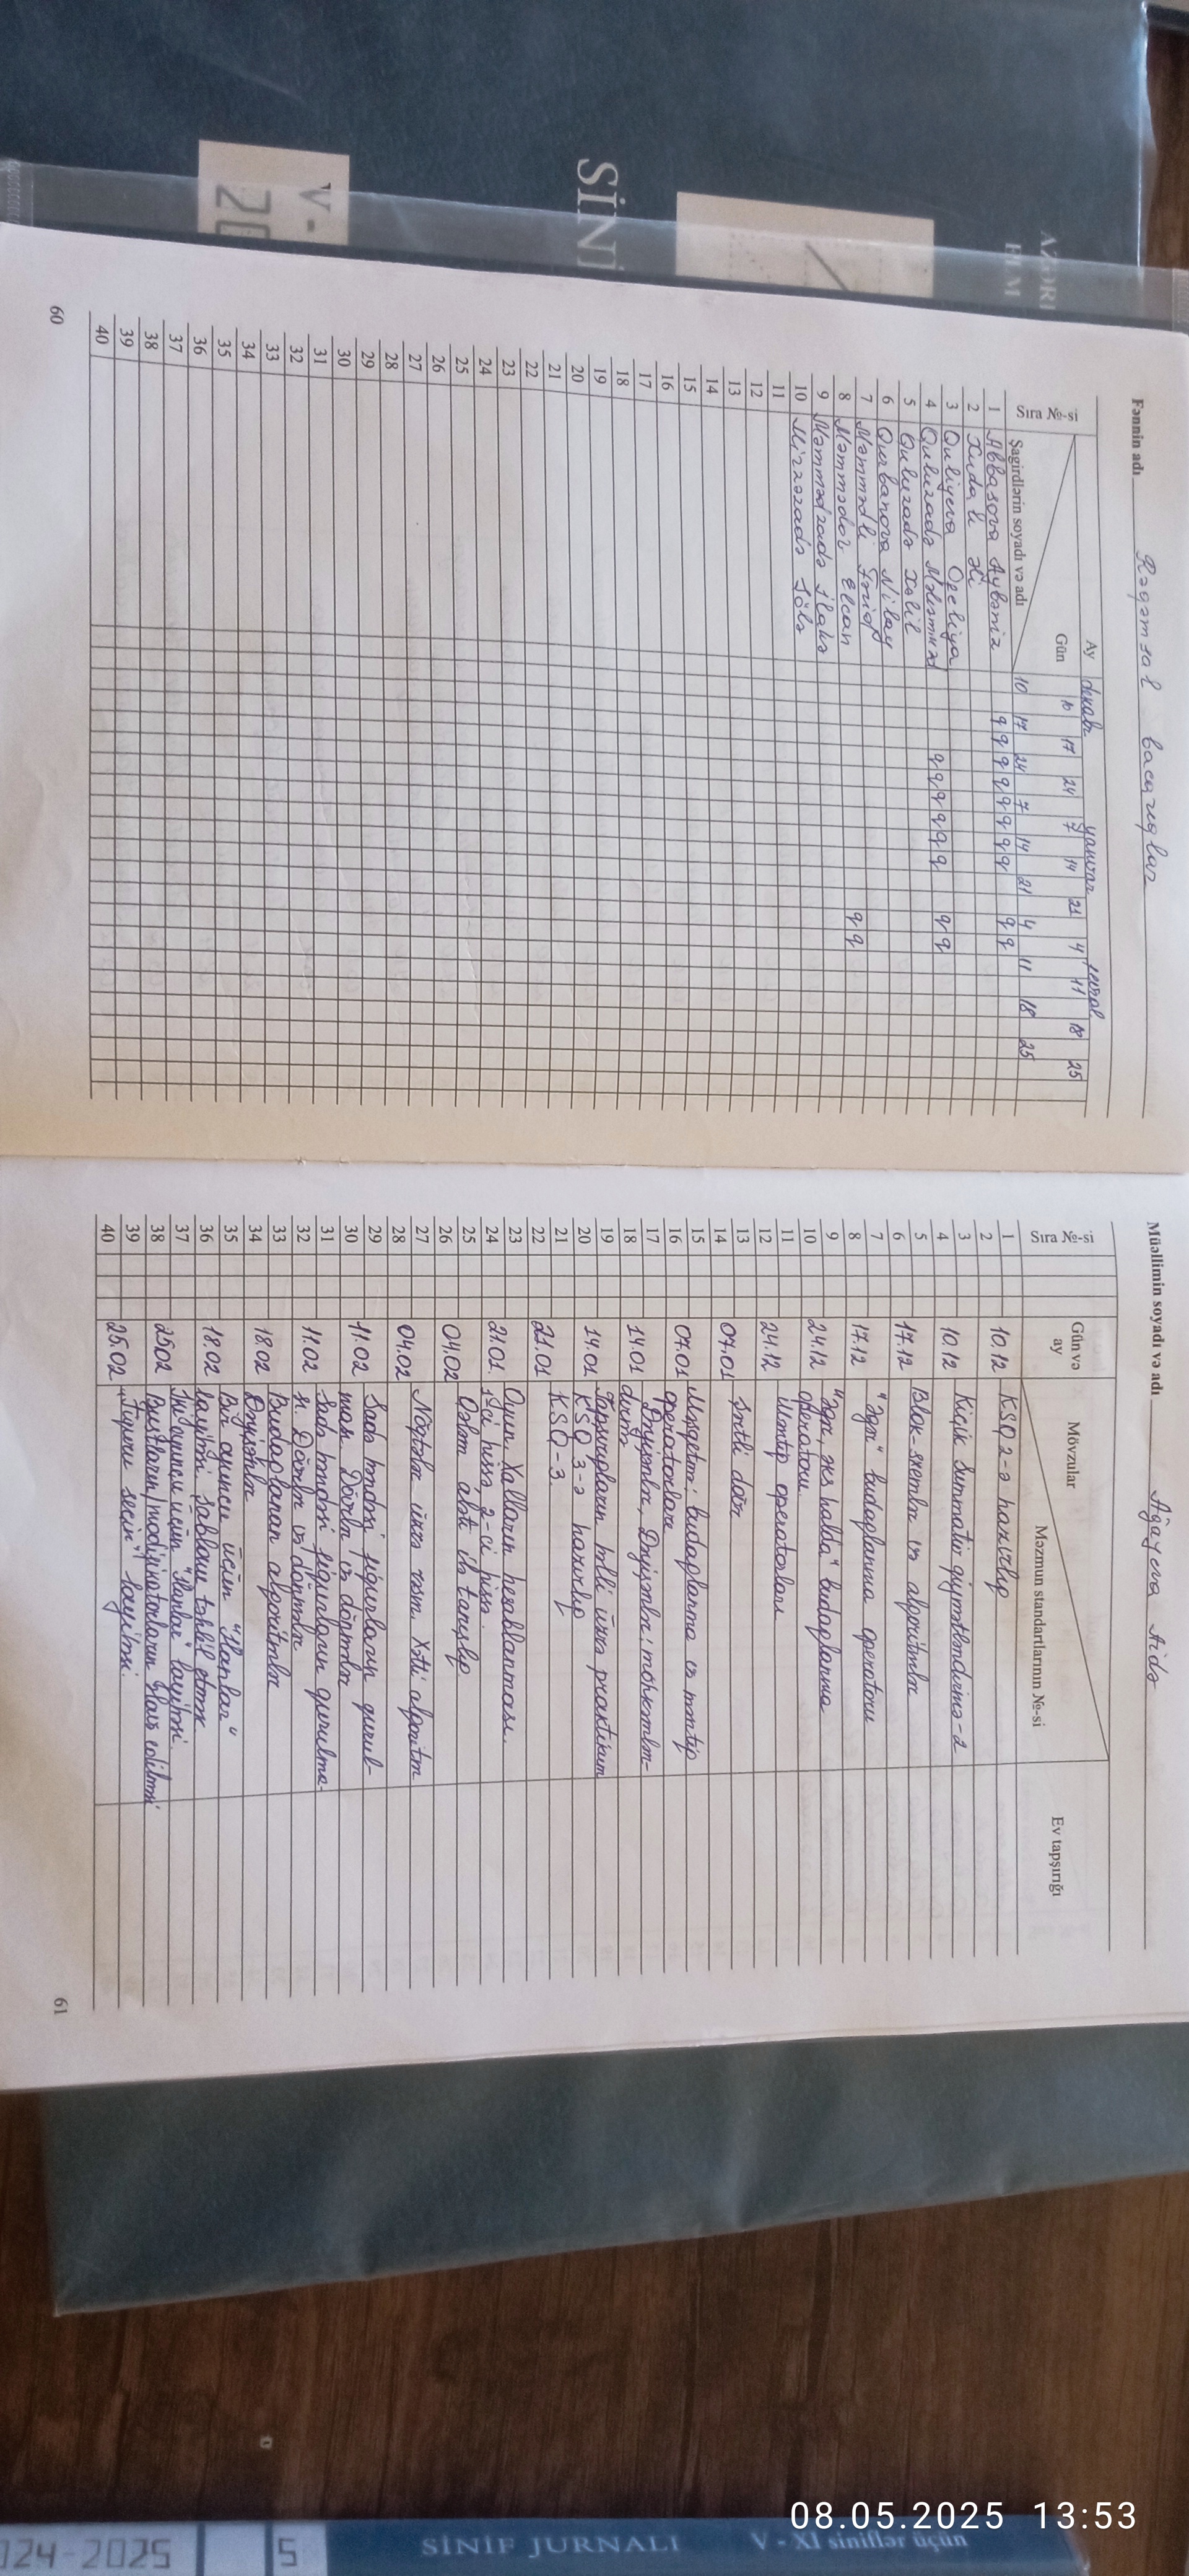 Fənnin adı Rəqəmsal bacarıqlar
Ay dekabr yanvar fevral
Gün 10 17 24 7 14 21 4 11 18 25
Sıra №-si
Şagirdlərin soyadı və adı 10 17 24 7 14 21 4 11 18 25
1 Abbasova Aybəniz q q q q q q q q q q
2 Xudalı Əli
3 Quliyeva Ofeliya
4 Quluzadə Məhəmməd q q q q q q q q
5 Quluzadə Xəlil
6 Qurbanova Nilay
7 Məmmədli Fərid
8 Məmmədov Elcan q q
9 Məmmədzadə İlahə
10 Mirzəzadə Jölə
11
12
13
14
15
16
17
18
19
20
21
22
23
24
25
26
27
28
29
30
31
32
33
34
35
36
37
38
39
40
60
Müəllimin soyadı və adı Ağayeva Aidə
Sıra №-si
Gün və ay
Mövzular
Məzmun standartlarının №-si
Ev tapşırığı
1
2
10.12 KSQ 2-ə hazırlıq
3
4
10.12 Kiçik Summativ qiymətləndirmə-2
5
6
17.12 Blok-sxemlər və alqoritmlər
7
8
17.12 "Əgər" budaqlanma operatoru
9
10
24.12 "Əgər, əks halda" budaqlanma
operatoru.
11
12
24.12 Məntiq operatorları
13
14
07.01 Şərtli dövr
15
16
07.01 Məşqetmə: budaqlanma və məntiq
operatorları
17
18
14.01 Dəyişənlər, Dəyişənlər: möhkəmlən-
dirmə
19
20
14.01 Tapşırıqların həlli üzrə praktikum
KSQ 3-ə hazırlıq
21
22
21.01 KSQ-3.
23
24
21.01. Oyun. Xalların hesablanması.
1-ci hissə, 2-ci hissə.
25
26
04.02 Qələm aləti ilə tanışlıq
27
28
04.02 Nöqtələr üzrə rəsm. Xətti alqoritm
29
30
11.02 Sadə həndəsi fiqurların qurul-
ması. Dövrlər və dönmələr
31
32
11.02 Sadə həndəsi fiqurların qurulma-
sı. Dövrlər və dönmələr
33
34
18.02 Budaqlanan alqoritmlər
Dəyişənlər
35
36
18.02 Bir oyunçu üçün "İlanlar"
layihəsi. Şablonu təhlil etmək
37
38
25.02 İki oyunçu üçün "İlanlar" layihəsi.
Bustların/modifikatorların əlavə edilməsi
39
40
25.02 "Fiquru seçin" layihəsi.
61
08.05.2025 13:53
AZƏRB
ELM
SİNİ
V-
20
SİNİF JURNALI V - XI siniflər üçün
024-2025
5